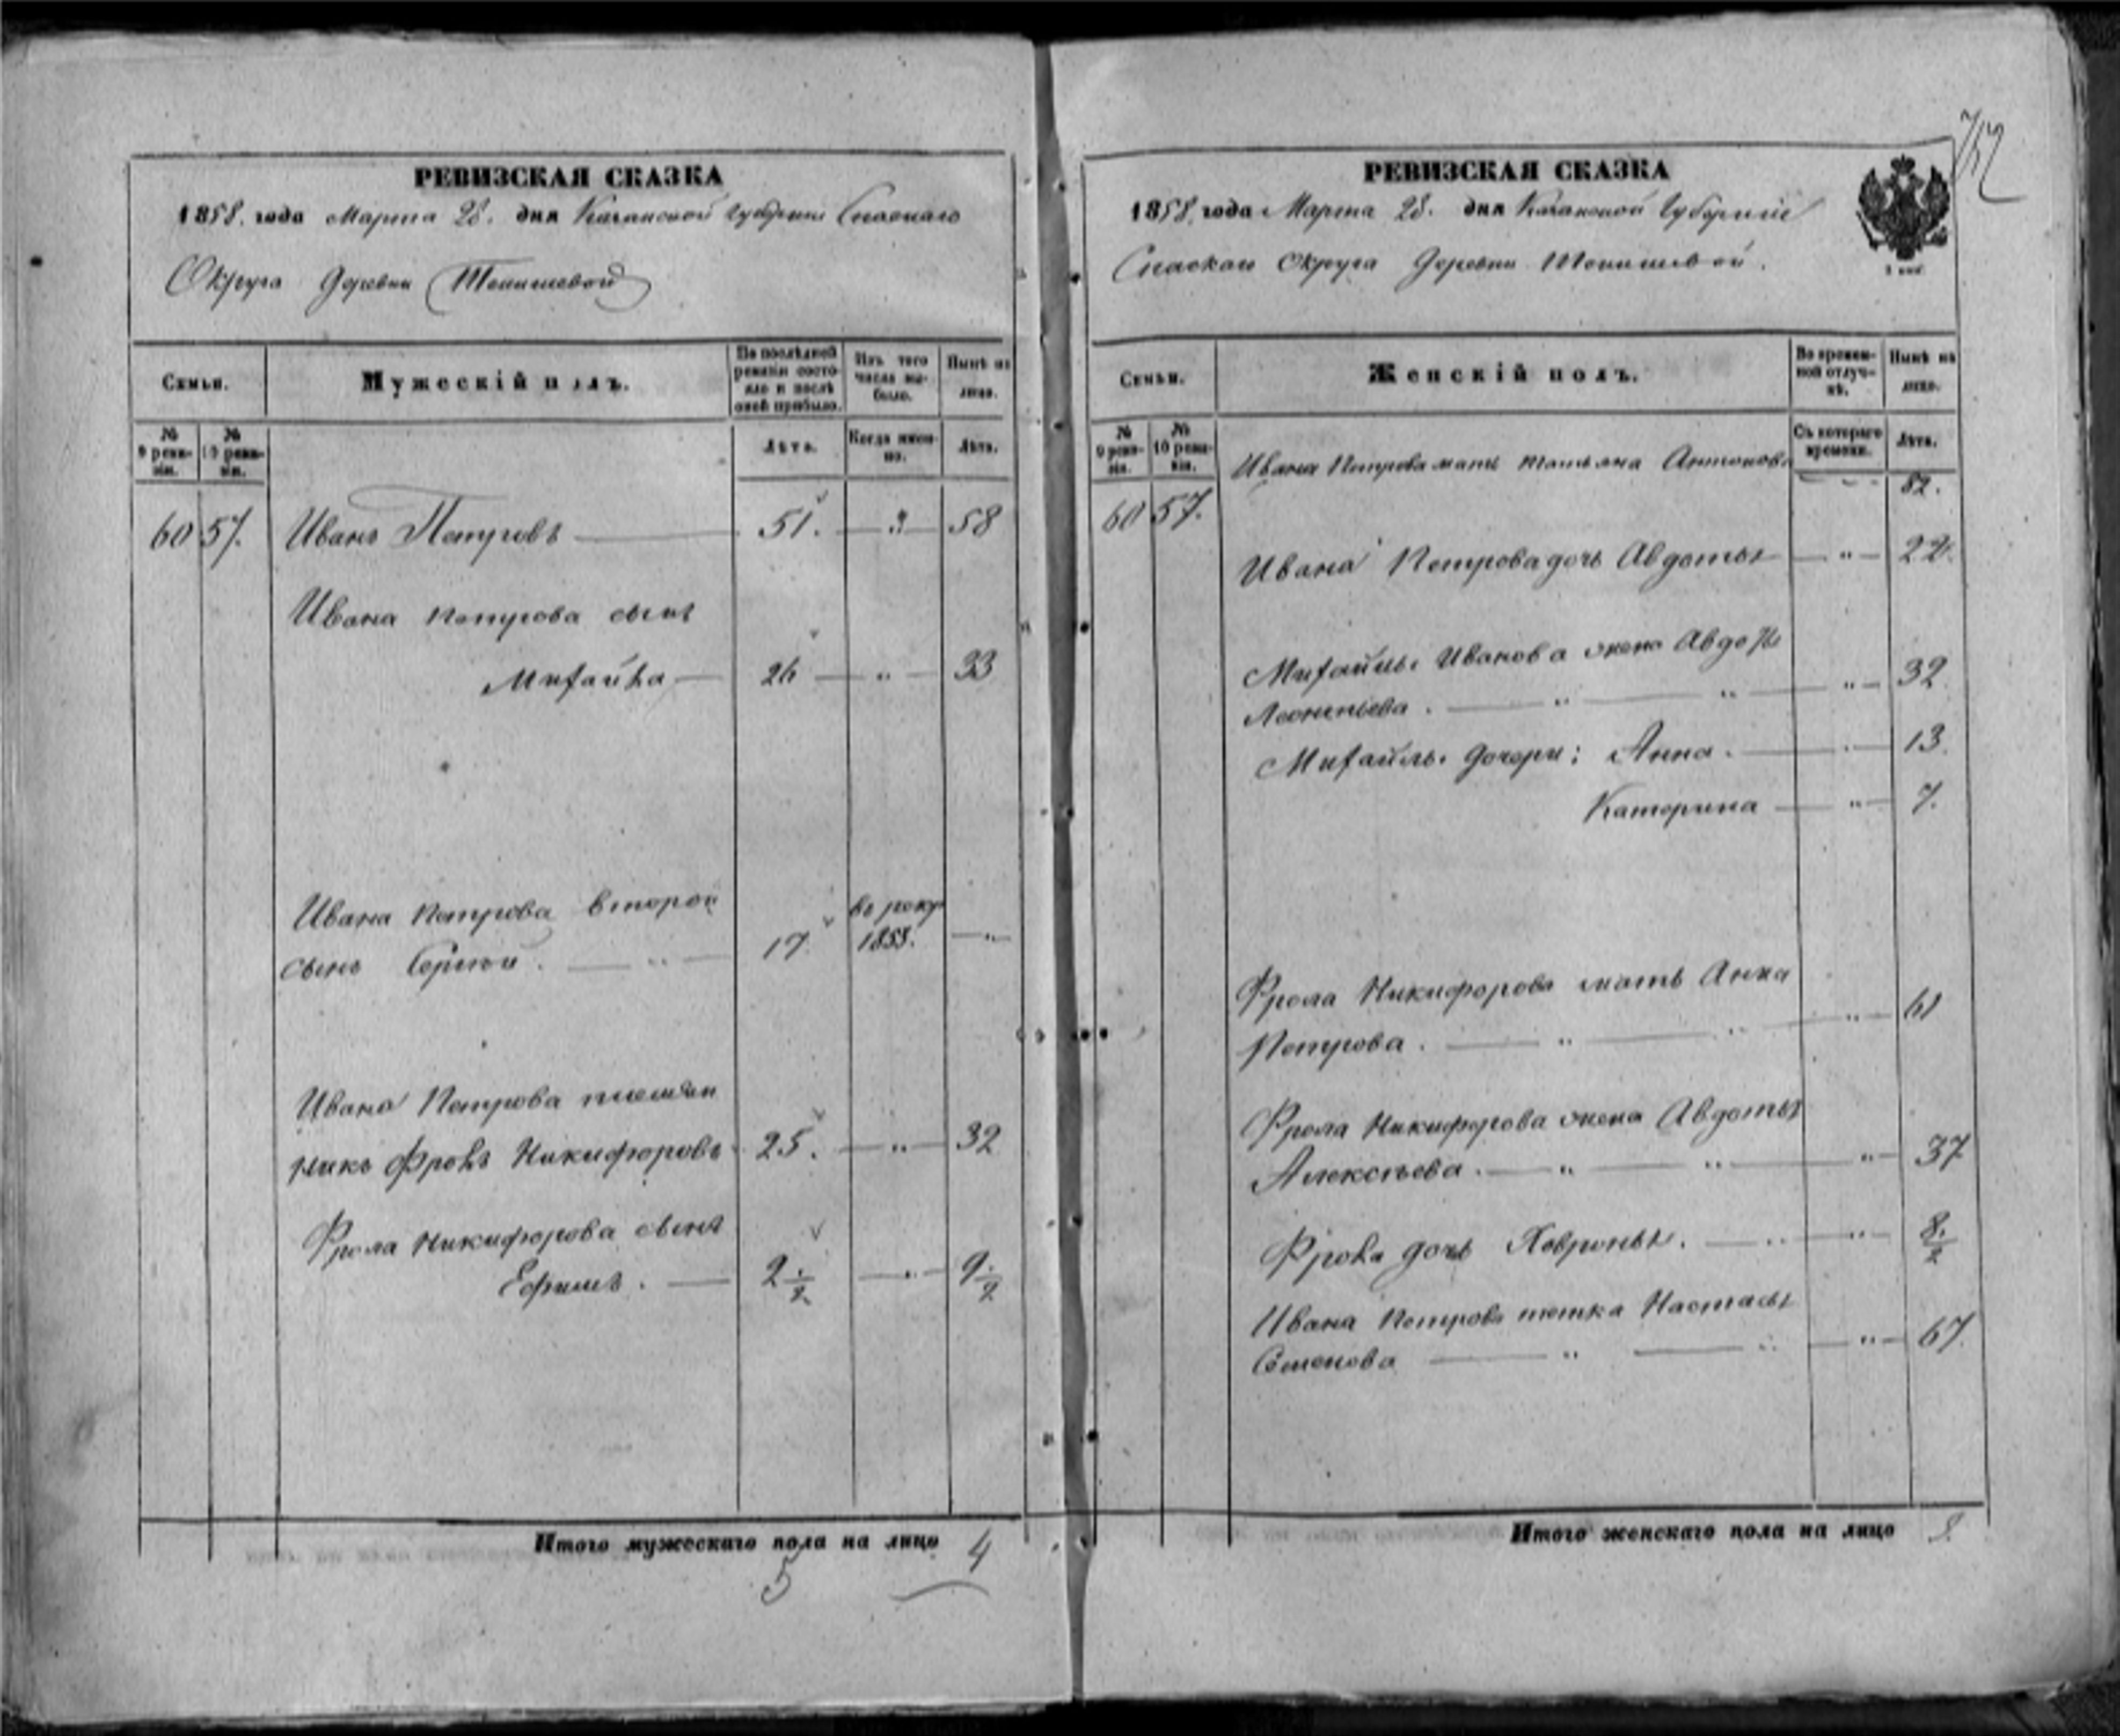 752
РЕВИЗСКАЯ СКАЗКА
1858. года Марта 28. дня Казанской губернии Спаскаго
Округа Деревни Тенишевой
Семьи.
Мужескій полъ.
По послѣдней ревизіи состояло и послѣ оной прибыло.
Изъ того числа выбыло.
Нынѣ на лицо.
№ 9 ревизіи.
№ 10 ревизіи.
Лѣта.
Когда именно.
Лѣта.
60 57. Иванъ Петровъ 51. " 58
Ивана Петрова сынъ
Михайла 26 " 33
Ивана Петрова второй
сынъ Сергѣй. " 17. въ рекр 1853. "
Ивана Петрова племян
никъ Фролъ Никифоровъ 25. " 32
Фрола Никифорова сынъ
Ефимъ. 2 1/2 " 9 1/2
Итого мужескаго пола на лицо 4
5
РЕВИЗСКАЯ СКАЗКА
1858. года Марта 28. дня Казанской Губерніи
Спаскаго Округа Деревни Тенишевой.
Семьи.
Женскій полъ.
Во временной отлучкѣ.
Нынѣ на лицо.
№ 9 ревизіи.
№ 10 ревизіи.
Съ котораго времени.
Лѣта.
Ивана Петрова мать Татьяна Антонова 82.
60 57.
Ивана Петрова дочь Авдотья " 22.
Михайлы Иванова жена Авдотья
Леонтьева. " " " 32.
Михайлы дочери: Анна. " 13.
Катерина " 7.
Фрола Никифорова мать Анна
Петрова. " " " 61
Фрола Никифорова жена Авдотья
Алексѣева. " " " 37
Фрола дочь Хавронья. " " 8 1/2
Ивана Петрова тетка Настасья
Семенова " " " 67.
Итого женскаго пола на лицо 9.